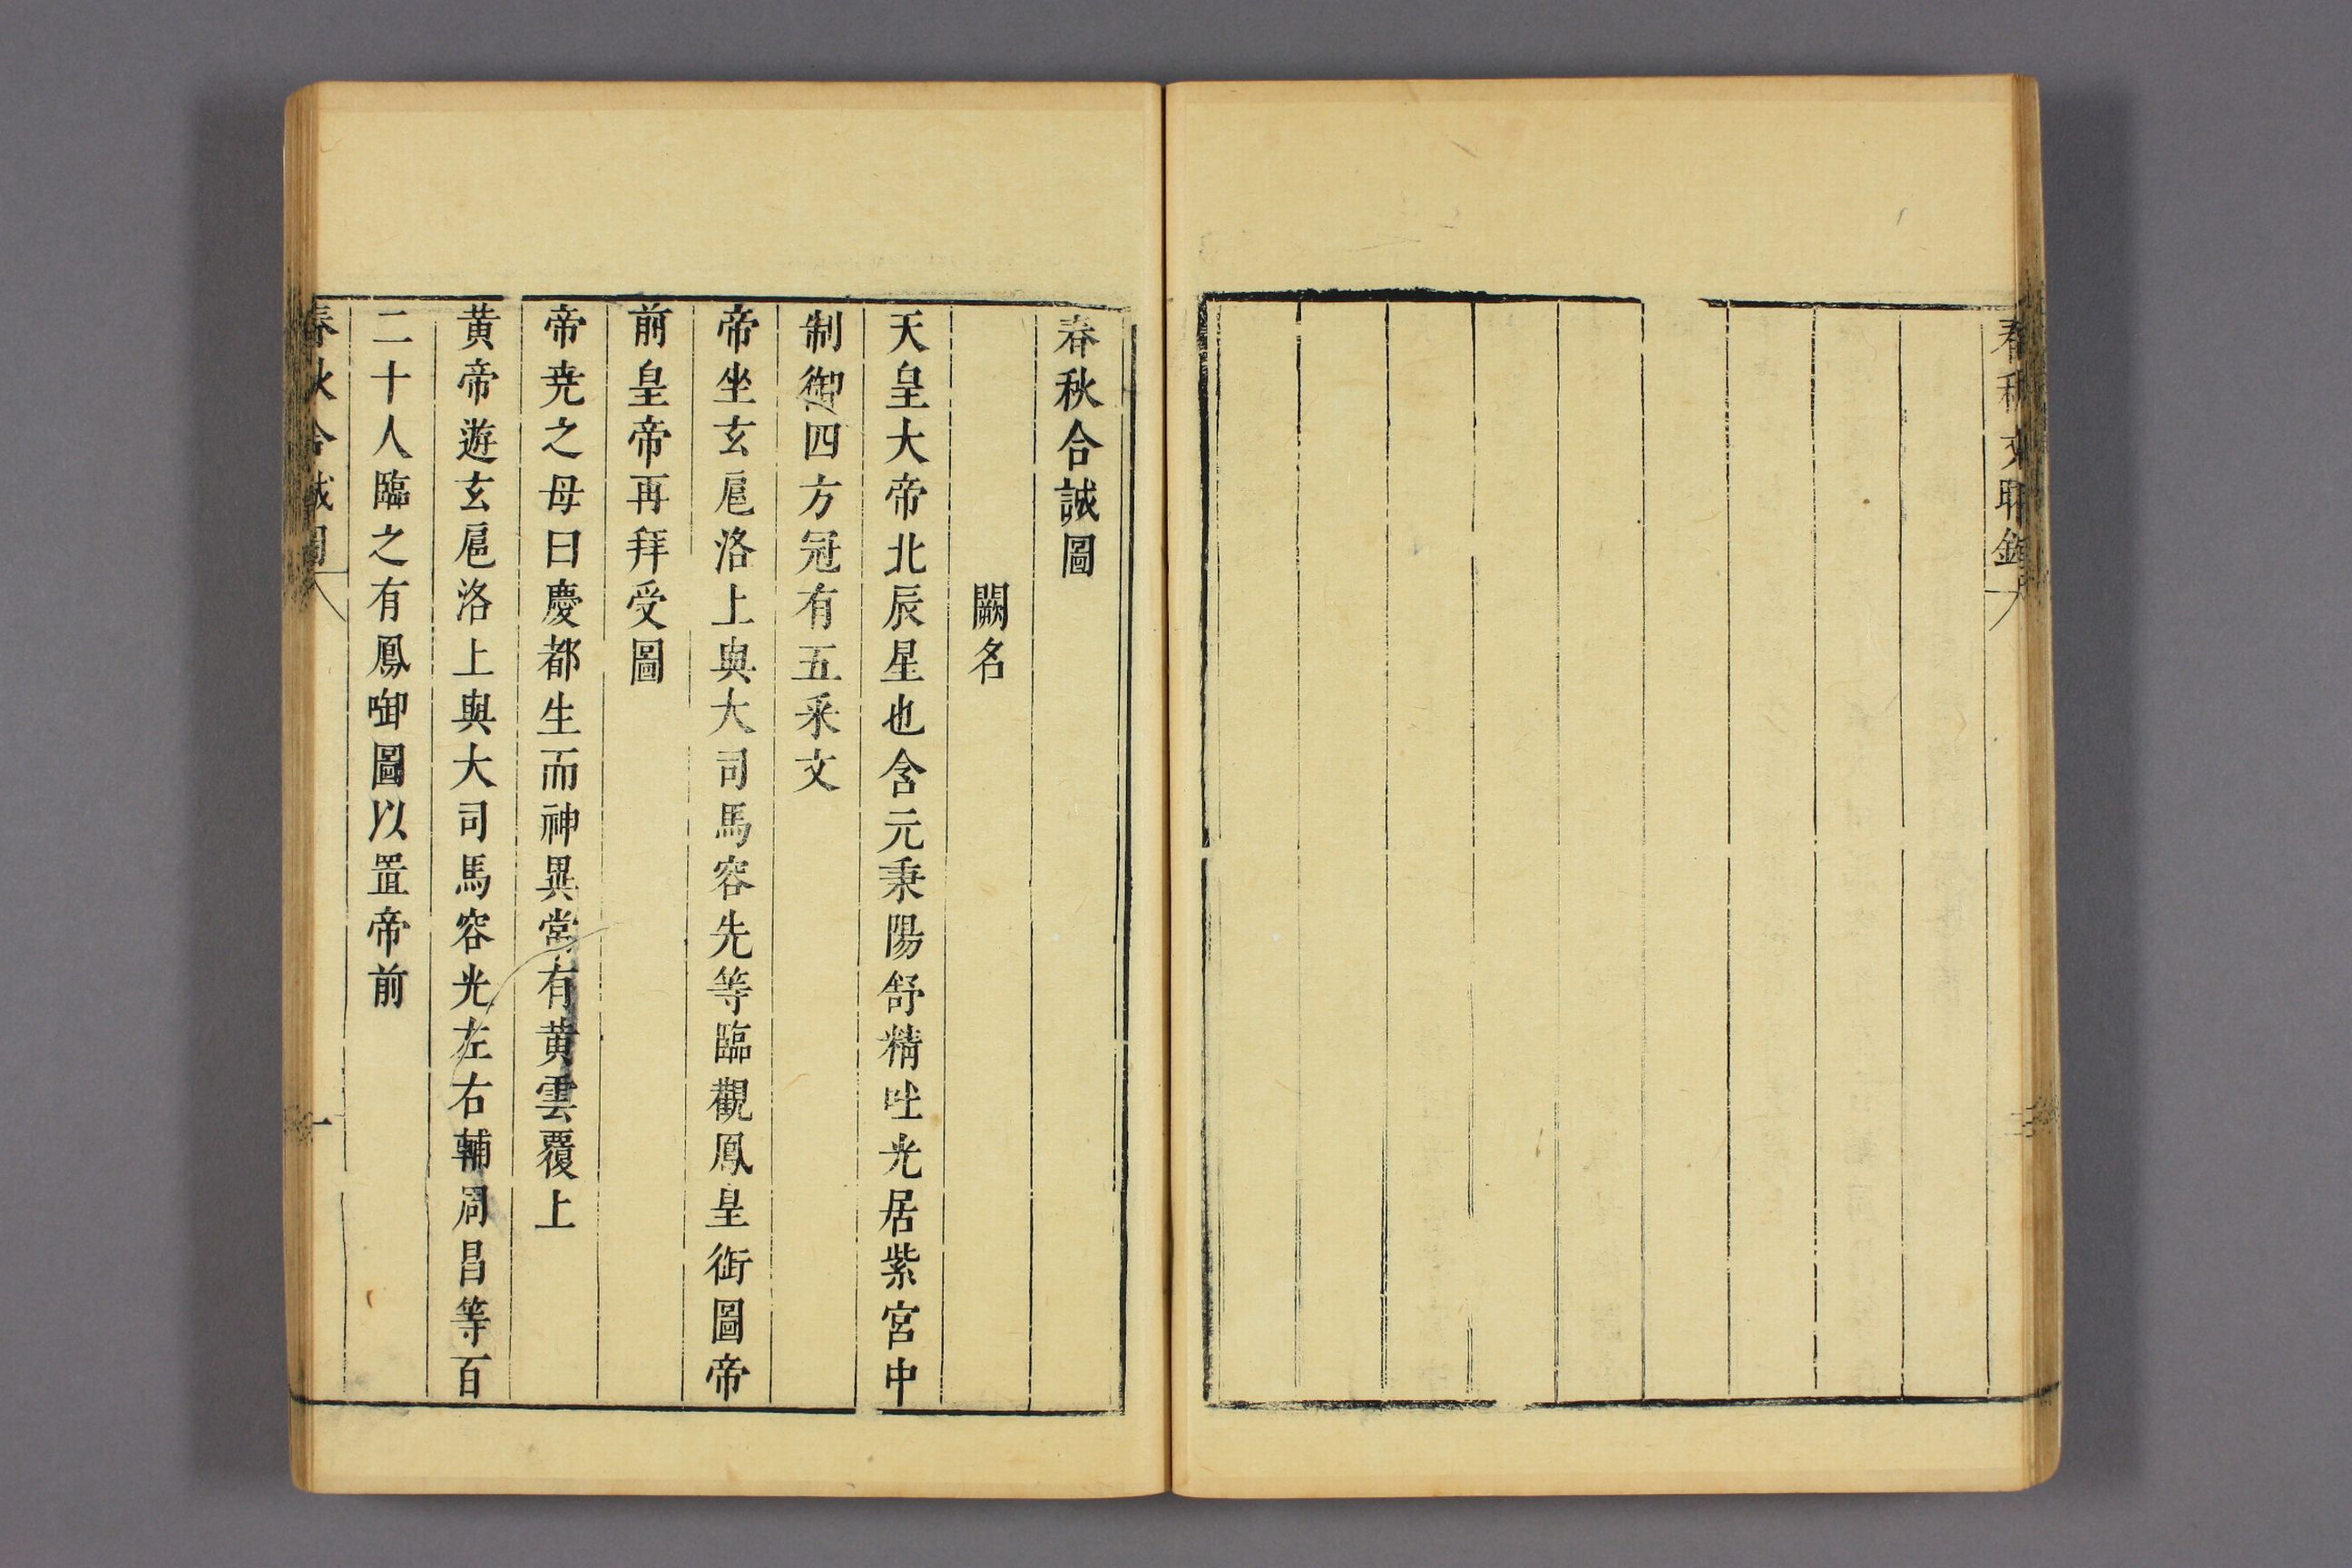 春秋文耶鉤
春秋合誠圖
闕名
天皇大帝北辰星也含元秉陽舒精吐光居紫宮中
制御四方冠有五釆文
帝坐玄扈洛上與大司馬容先等臨觀鳳皇銜圖帝
前皇帝再拜受圖
帝尭之母曰慶都生而神異常有黃雲覆上
黃帝遊玄扈洛上與大司馬容光左右輔周昌等百
二十人臨之有鳳啣圖以置帝前
春秋合誠圖
一